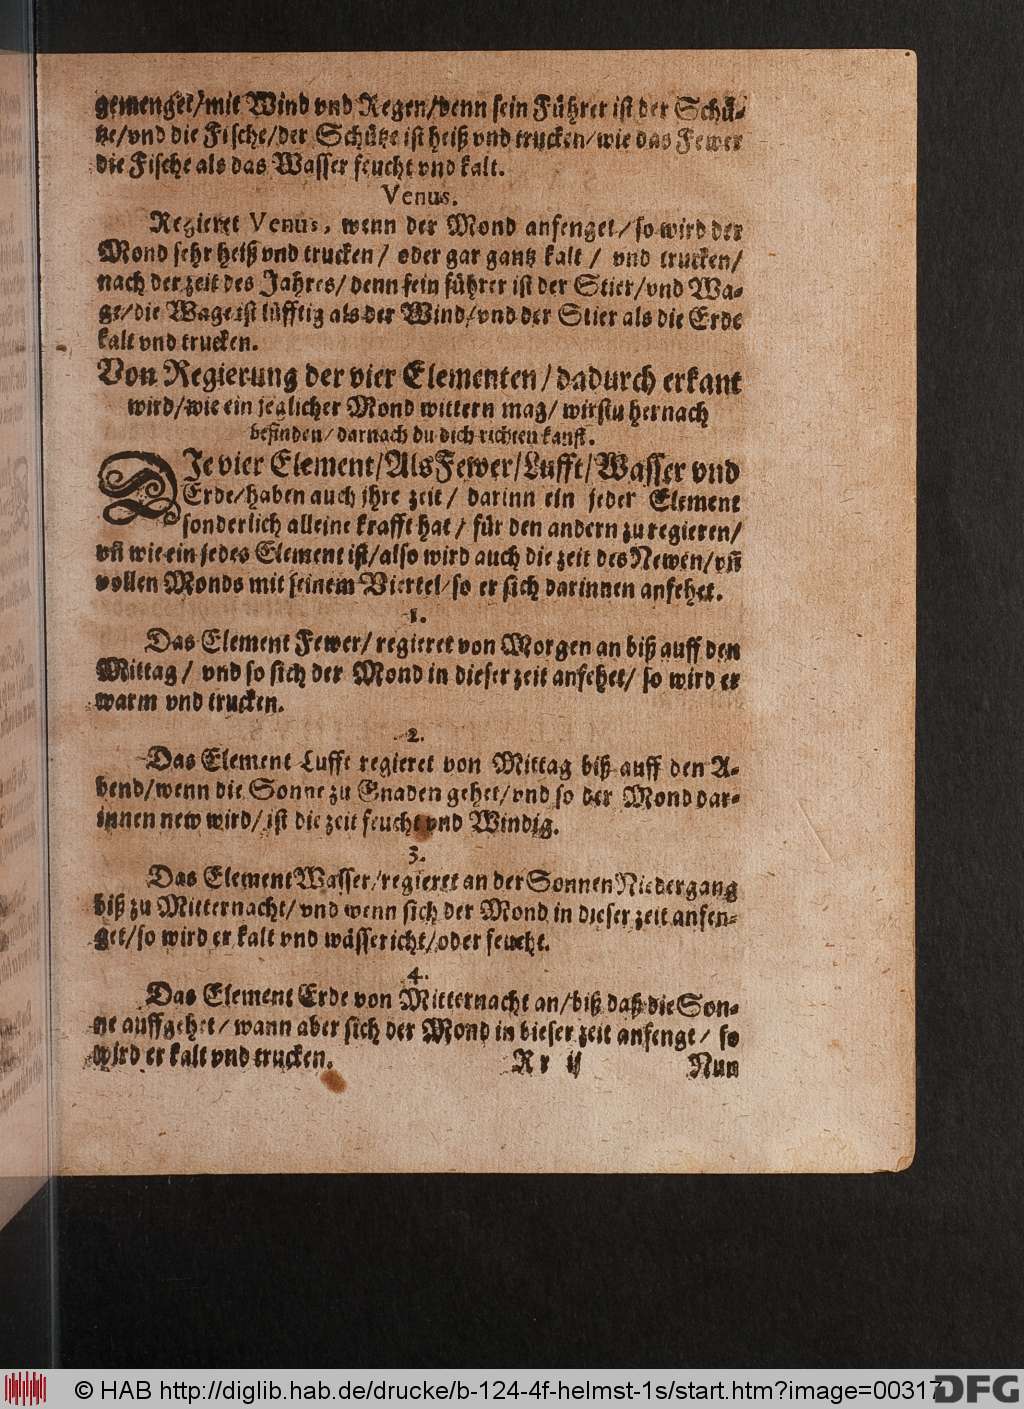 gemenget/mit Wind vnd Regen/denn sein Führer ist der Schü-
tze/vnd die Fische/der Schütze ist heiß vnd trucken/wie das Fewer
die Fische als das Wasser feucht vnd kalt.
Venus.
Regieret Venus, wenn der Mond anfenget/so wird der
Mond sehr heiß vnd trucken/ oder gar gantz kalt/ vnd trucken/
nach der zeit des Jahres/denn sein führer ist der Stier/vnd Wa-
ge/die Wage ist lüfftig als der Wind/vnd der Stier als die Erde
kalt vnd trucken.
Von Regierung der vier Elementen/dadurch erkant
wird/wie ein jeglicher Mond wittern mag/wirstu hernach
befinden/darnach du dich richten kanst.
DJe vier Element/Als Fewer/Lufft/Wasser vnd
Erde/haben auch jhre zeit/ darinn ein jeder Element
sonderlich alleine krafft hat/ für den andern zu regieren/
vñ wie ein jedes Element ist/also wird auch die zeit des Newen/vñ
vollen Monds mit seinem Viertel/so er sich darinnen anfehet.
1.
Das Element Fewer/ regieret von Morgen an biß auff den
Mittag/ vnd so sich der Mond in dieser zeit anfehet/ so wird er
warm vnd trucken.
2.
Das Element Lufft regieret von Mittag biß auff den A-
bend/wenn die Sonne zu Gnaden gehet/vnd so der Mond dar-
innen new wird/ist die zeit feucht vnd Windig.
3.
Das Element Wasser/regieret an der Sonnen Niedergang
biß zu Mitternacht/vnd wenn sich der Mond in dieser zeit anfen-
get/so wird er kalt vnd wässericht/oder feucht.
4.
Das Element Erde von Mitternacht an/biß daß die Son-
ne auffgehet/wann aber sich der Mond in dieser zeit anfenge/ so
wird er kalt vnd trucken.
Rr ij Nun
© HAB http://diglib.hab.de/drucke/b-124-4f-helmst-1s/start.htm?image=00317
DFG